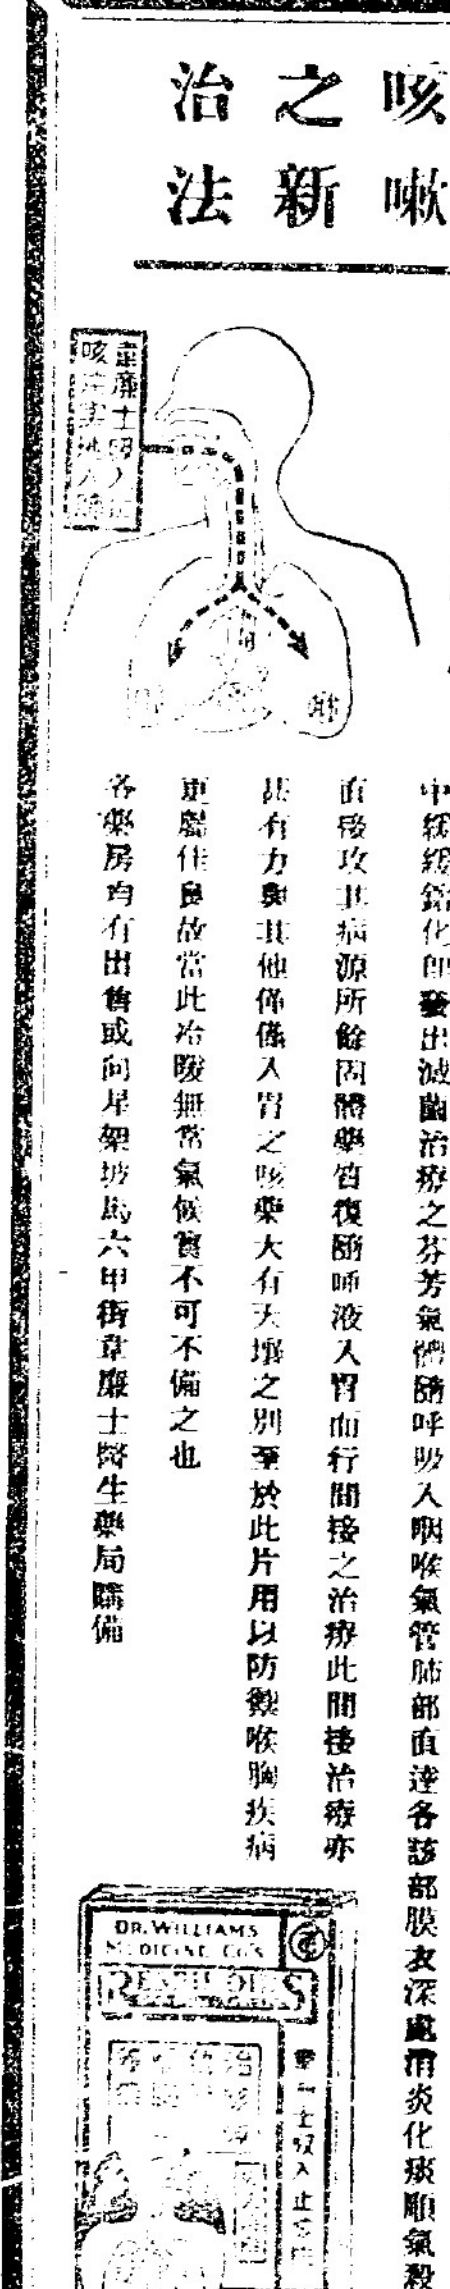 咳嗽
之新
治法
韋廉士吸入止
咳片實地入肺
肺
中緩緩鎔化卽發出滅菌治療之芬芳氣體隨呼吸入咽喉氣管肺部直達各該部膜衣深處消炎化痰順氣殺
直接攻其病源所餘固體藥質復隨唾液入胃而行間接之治療此間接治療亦
甚有力與其他僅僅入胃之咳藥大有天壤之別至於此片用以防禦喉胸疾病
更屬佳良故當此冷暖無常氣候實不可不備之也
各藥房均有出售或向星架坡馬六甲街韋廉士醫生藥局購備
DR. WILLIAMS
MEDICINE CO'S